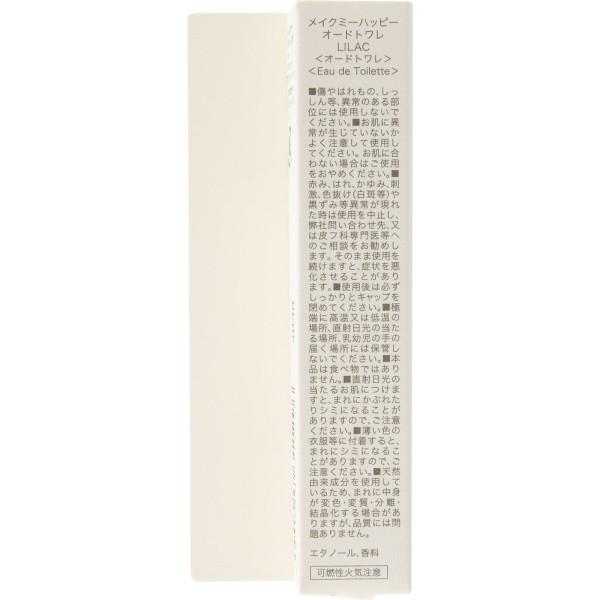 メイクミーハッピー
オードトワレ
LILAC
＜オードトワレ＞
＜Eau de Toilette＞
■傷やはれもの、しっ
しん等、異常のある部
位には使用しないで
ください。■お肌に異
常が生じていないか
よく注意して使用し
てください。お肌に合
わない場合はご使用
をおやめください。■
赤み、はれ、かゆみ、刺
激、色抜け(白斑等)や
黒ずみ等異常が現れ
た時は使用を中止し、
弊社問い合わせ先、又
は皮フ科専門医等へ
のご相談をお勧めし
ます。そのまま使用を
続けますと、症状を悪
化させることがあり
ます。■使用後は必ず
しっかりとキャップを
閉めてください。■極
端に高温又は低温の
場所、直射日光の当た
る場所、乳幼児の手の
届く場所には保管し
ないでください。■本
品は食べ物ではあり
ません。■直射日光の
当たるお肌につけま
すと、まれにかぶれた
りシミになることが
ありますので、ご注意
ください。■薄い色の
衣服等に付着すると、
まれにシミになるこ
とがありますので、ご
注意ください。■天然
由来成分を使用して
いるため、まれに中身
が変色・変質・分離・
結晶化する場合があ
りますが、品質には問
題ありません。
エタノール、香料
可燃性火気注意